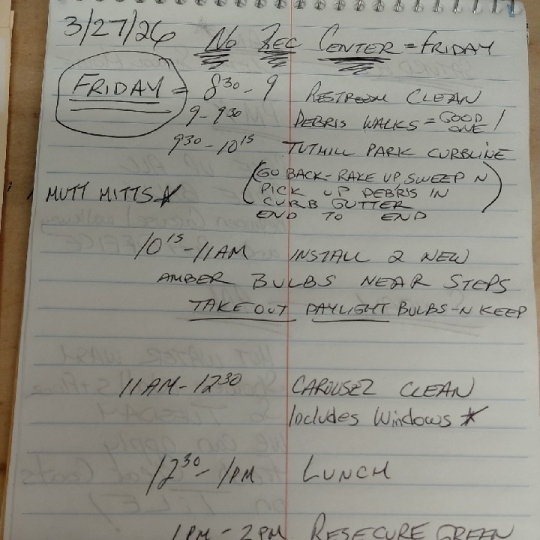 3/27/26 No Rec Center = Friday
Friday = 830 - 9 Restroom Clean
9 - 930 Debris Walks = Good One!
930 - 1015 Tuthill Park Curbline
(Go Back - Rake up Sweep n
Mutt Mitts ★ Pick up Debris in
Curb Gutter
End to End)
1015 - 11AM Install 2 New
Amber Bulbs Near Steps
Take Out Daylight Bulbs - n Keep
11AM - 1230 Carousel Clean
Includes Windows ★
1230 - 1PM Lunch
1PM - 2PM Resecure Green